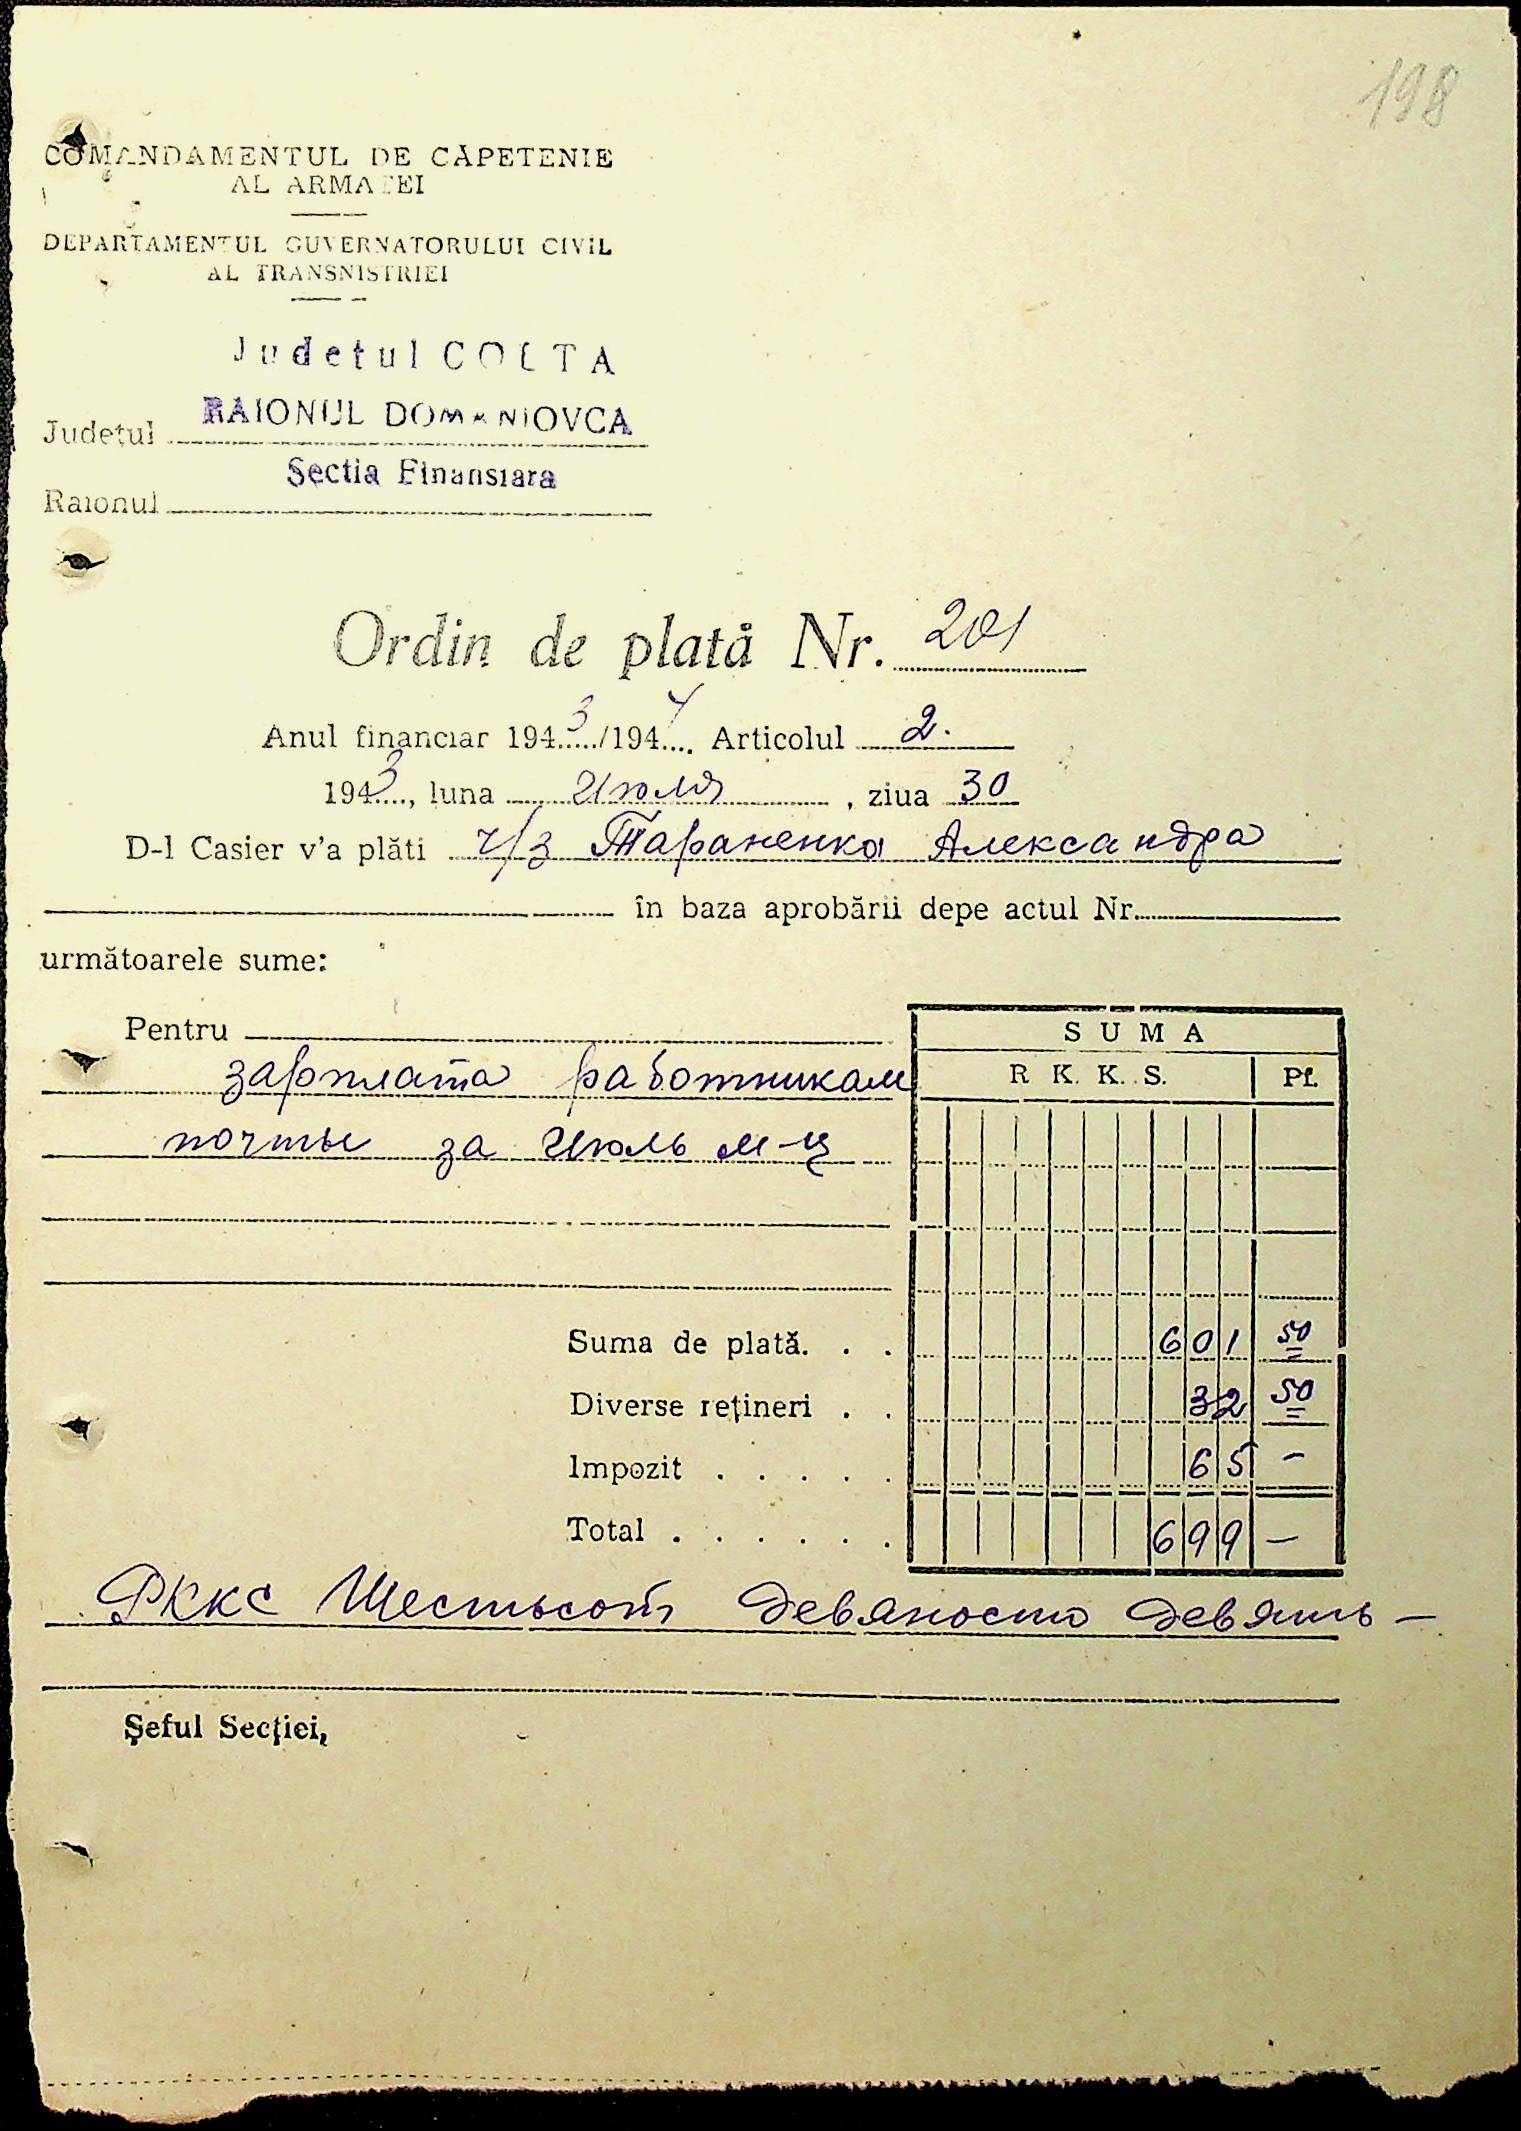 198
COMANDAMENTUL DE CĂPETENIE
AL ARMATEI
DEPARTAMENTUL GUVERNATORULUI CIVIL
AL TRANSNISTRIEI
Judetul COLTA
RAIONUL DOMANIOVCA
Județul
Sectia Finansiara
Raionul
Ordin de plată Nr. 201
Anul financiar 1943/1944 Articolul 2.
1943, luna Июля, ziua 30
D-l Casier v'a plăti ч/з Тараненко Александра
în baza aprobării depe actul Nr.
următoarele sume:
Pentru
SUMA
зарплата работникам
R. K. K. S. Pf.
почты за Июль м-ц
Suma de plată. . . 601 50
Diverse rețineri . . 32 50
Impozit . . . . . 65 –
Total . . . . . . 699 –
РККС Шестьсот девяносто девять –
Șeful Secției,